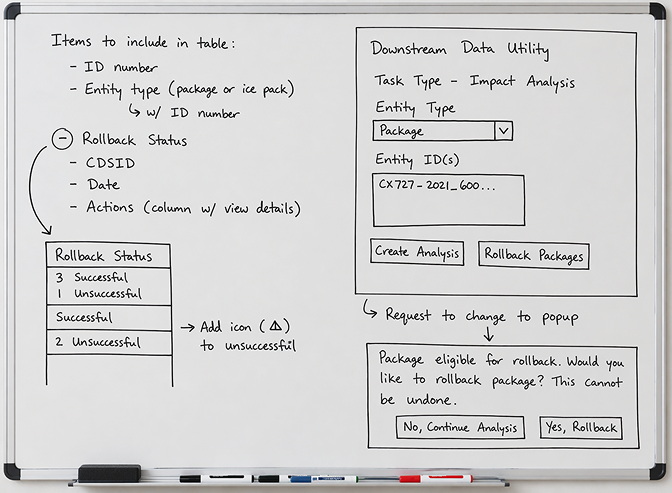 Items to include in table:
- ID number
- Entity type (package or ice pack)
↳ w/ ID number
⊖ Rollback Status
- CDSID
- Date
- Actions (column w/ view details)
Rollback Status
3 Successful
1 Unsuccessful
Successful
2 Unsuccessful
→ Add icon (⚠)
to unsuccessful
Downstream Data Utility
Task Type - Impact Analysis
Entity Type
Package
Entity ID(s)
CX727-2021_600...
Create Analysis
Rollback Packages
↳ Request to change to popup
Package eligible for rollback. Would you
like to rollback package? This cannot
be undone.
No, Continue Analysis
Yes, Rollback